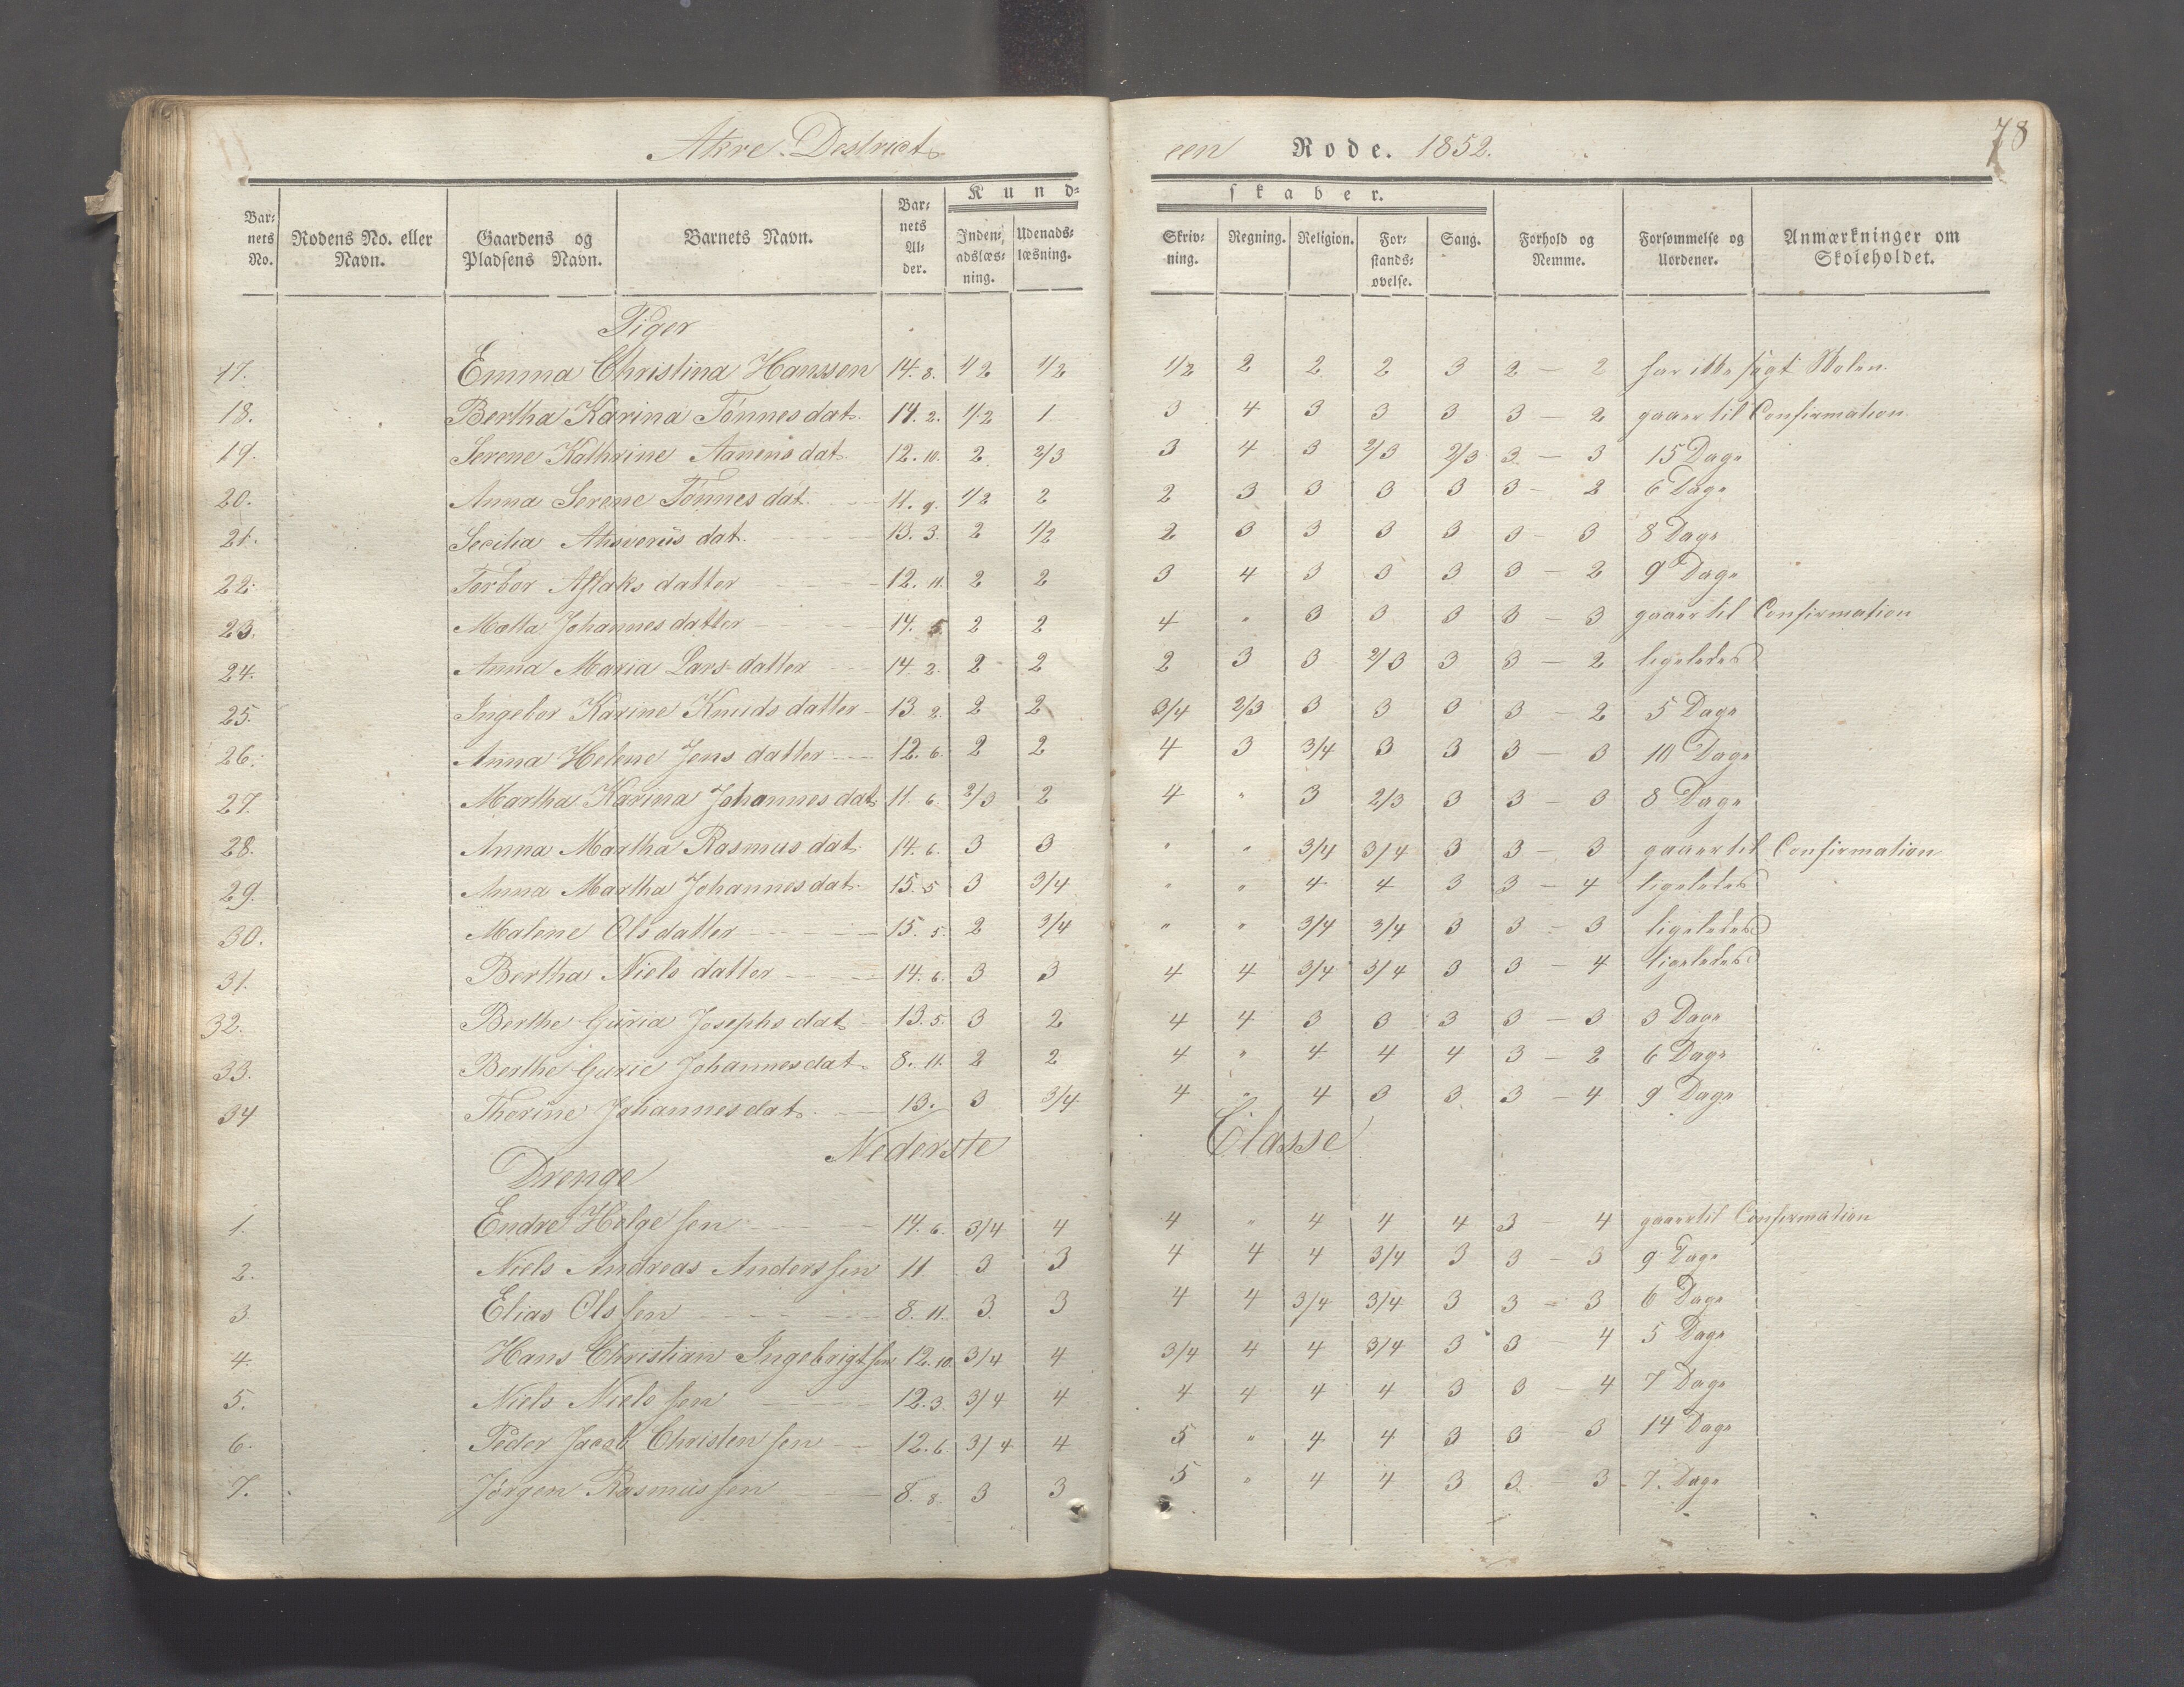 Akre. Destrict een Rode. 1852. 78
Kund= skaber.
Bar= nets No. Rodens No. eller Navn. Gaardens og Pladsens Navn. Barnets Navn. Bar= nets Al= der. Inden= adslæs= ning. Udenads= læsning. Skriv= ning. Regning. Religion. For= stands= øvelse. Sang. Forhold og Nemme. Forsømmelse og Uordener. Anmærkninger om Skoleholdet.
Piger
17. Emma Christina Hanssen 14. 8. 1/2 1/2 1/2 2 2 2 3 2 — 2 har ikke søgt Skolen.
18. Bertha Karina Tönnes dat. 14. 2. 1/2 1 3 4 3 3 3 3 — 2 gaaer til Confirmation
19. Serene Kathrine Aanens dat. 12. 10. 2 2/3 3 4 3 2/3 2/3 3 — 3 15 Dage
20. Anna Serene Tönnes dat. 11. 9. 1/2 2 2 3 3 3 3 3 — 2 6 Dage
21. Secilia Ahsverüs dat. 13. 3. 2 1/2 2 3 3 3 3 3 — 3 8 Dage
22. Torbor Aslaks datter 12. 11. 2 2 3 4 3 3 3 3 — 2 9 Dage
23. Malla Johannes datter 14. 5 2 2 4 " 3 3 3 3 — 3 gaaer til Confirmation
24. Anna Maria Lars datter 14. 2. 2 2 2 3 3 2/3 3 3 — 2 ligeledes
25. Ingebor Karine Knuds datter 13. 2. 2 2 3/4 2/3 3 3 3 3 — 2 5 Dage
26. Anna Helene Jens datter 12. 6. 2 2 4 3 3/4 3 3 3 — 3 10 Dage
27. Martha Karina Johannes dat 11. 6. 2/3 2 4 " 3 2/3 3 3 — 3 8 Dage
28. Anna Martha Rasmus dat. 14. 6. 3 3 " " 3/4 3/4 3 3 — 3 gaaer til Confirmation
29. Anna Martha Johannes dat. 15. 5 3 3/4 " " 4 4 3 3 — 4 ligeledes
30. Malene Ols datter 15. 5. 2 3/4 " " 3/4 3/4 3 3 — 3 ligeledes
31. Bertha Niels datter 14. 6. 3 3 4 4 3/4 3/4 3 3 — 4 ligeledes
32. Berthe Guria Josephs dat 13. 5. 3 2 4 4 3 3 3 3 — 3 3 Dage
33. Berthe Gurie Johannes dat. 8. 11. 2 2 4 " 4 4 4 3 — 2 6 Dage
34 Thorine Johannes dat. 13. 3 3/4 4 " 4 3 3 3 — 4 9 Dage
Nederste Classe
Drenge
1. Endre Helge sen 14. 6. 3/4 4 4 " 4 4 4 3 — 4 gaaer til Confirmation
2. Niels Andreas Anders sen 11. 3 3 4 4 4 3/4 3 3 — 3 9 Dage
3 Elias Ols sen 8. 11. 3 3 4 4 3/4 3/4 3 3 — 3 6 Dage
4. Hans Christian Ingebrigt sen 12. 10. 3/4 4 3/4 4 4 3/4 3 3 — 4 5 Dage
5. Niels Niels sen 12. 3. 3/4 4 4 4 4 4 3 3 — 4 7 Dage
6. Peder Jacob Christen sen 12. 6. 3/4 4 5 " 4 4 3 3 — 3 14 Dage
7. Jörgen Rasmus sen 8. 8. 3 3 5 " 4 4 3 3 — 3 7. Dage